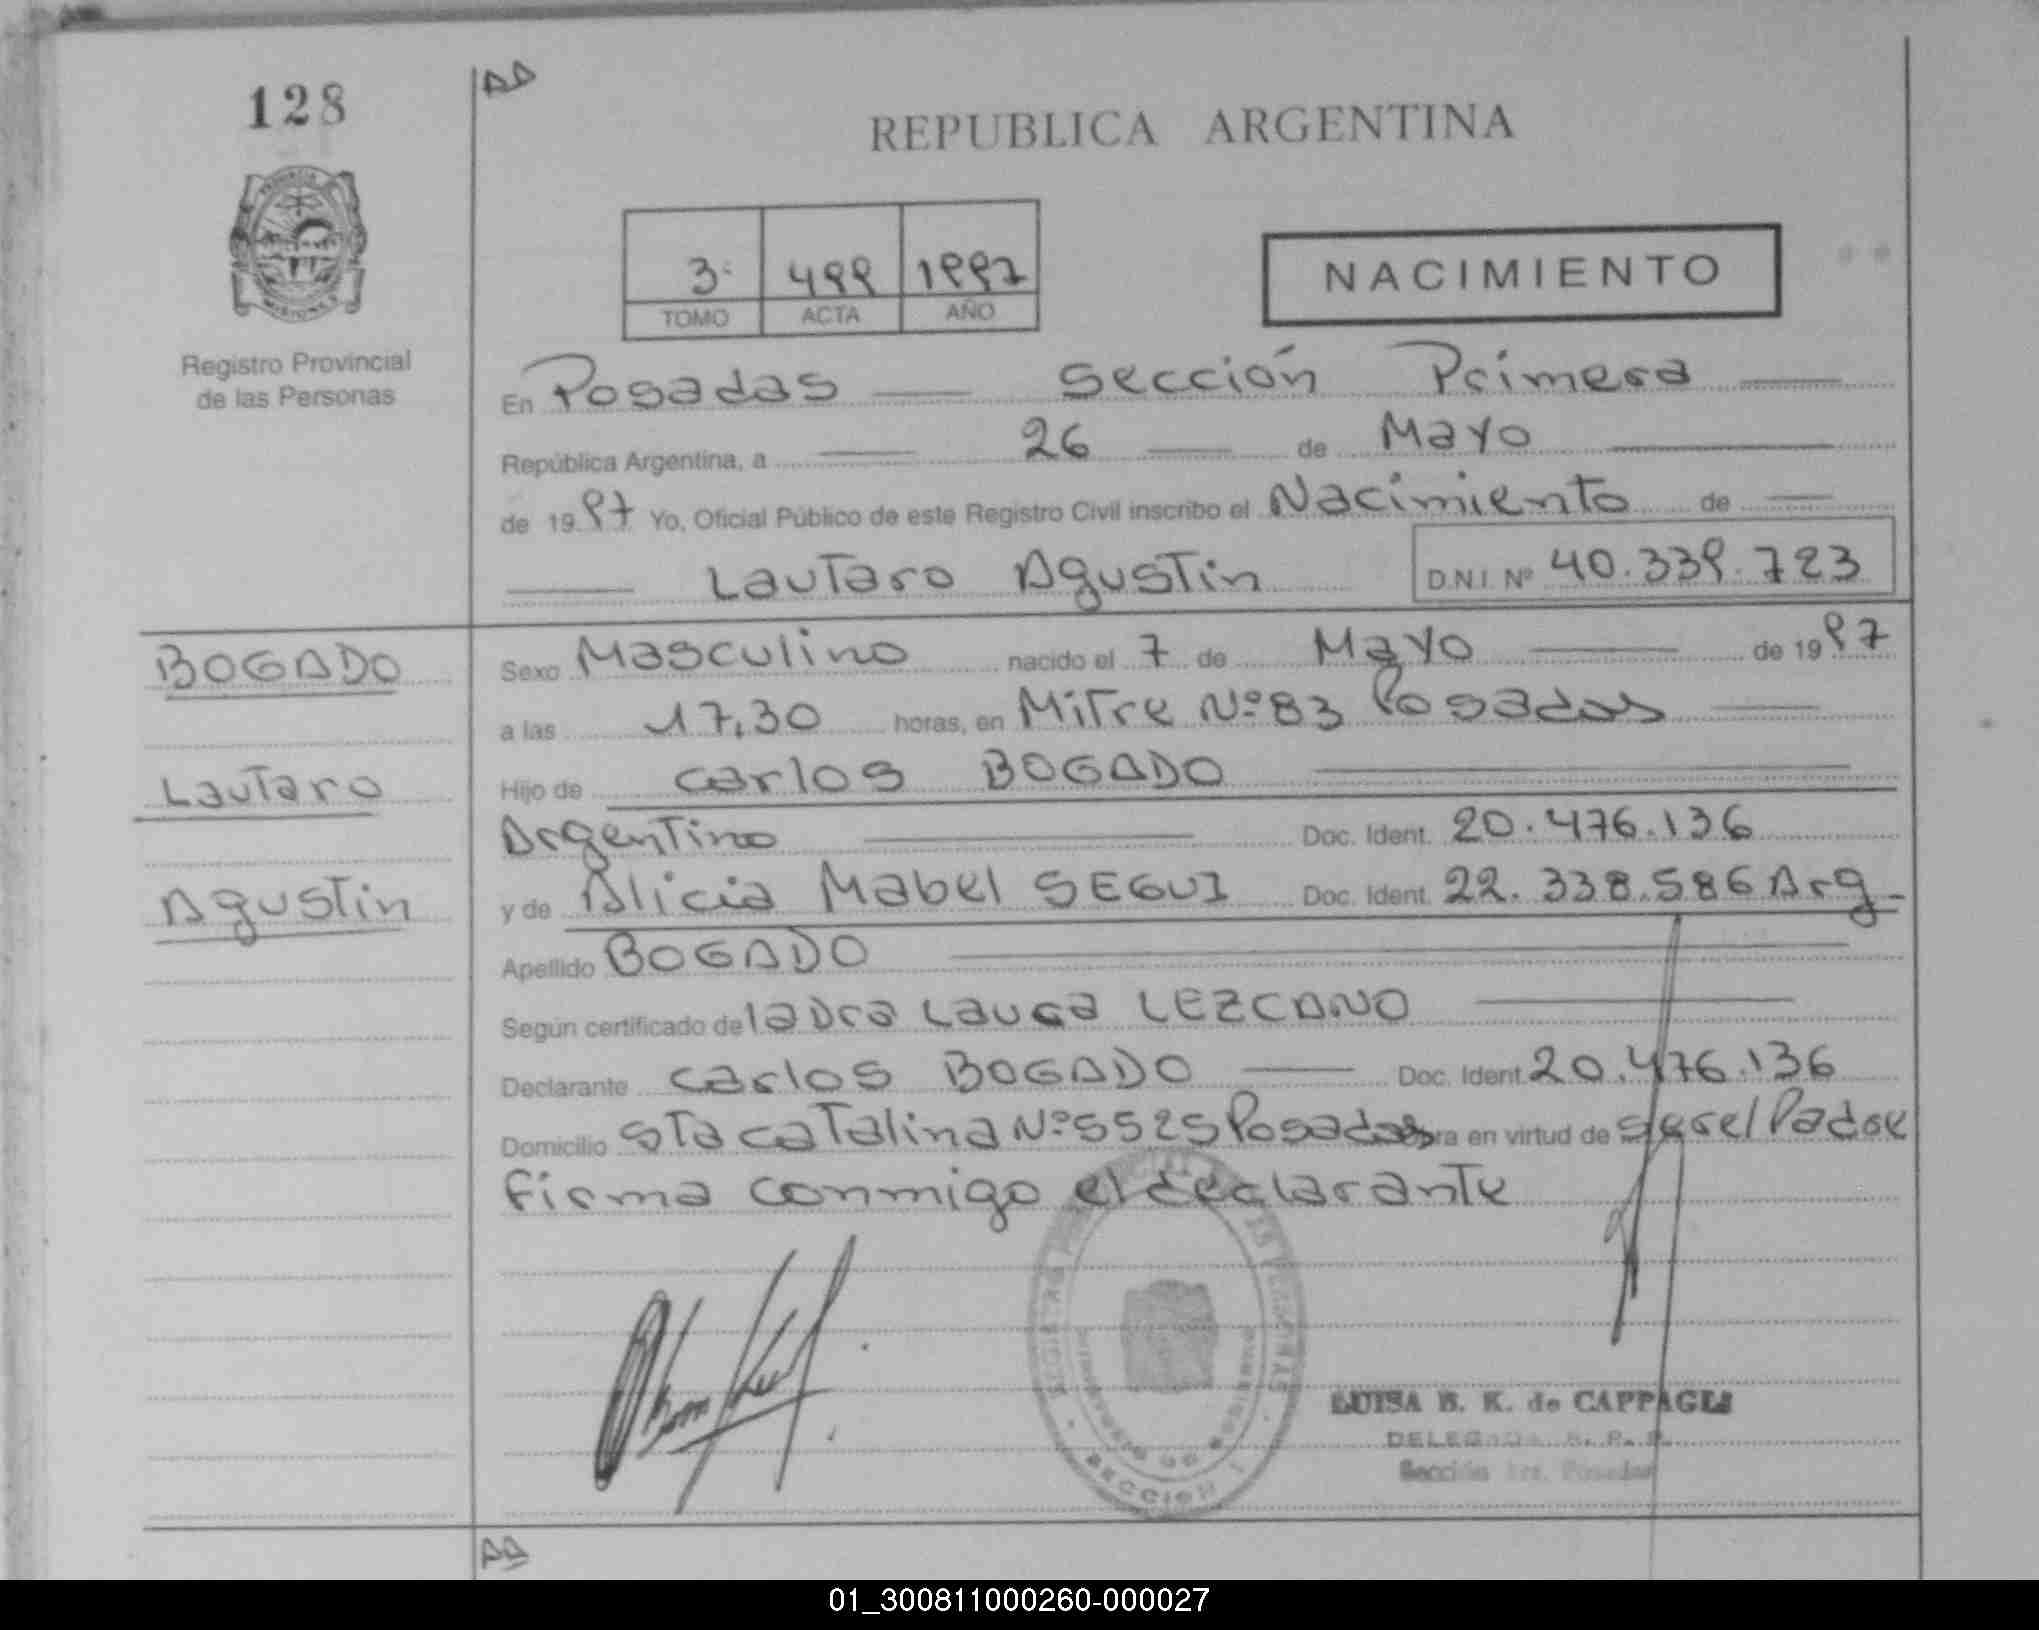 128
REPUBLICA ARGENTINA
3º 499 1997
TOMO ACTA AÑO
NACIMIENTO
Registro Provincial
de las Personas
En Posadas sección Primera
República Argentina, a 26 de Mayo
de 1997 Yo, Oficial Público de este Registro Civil inscribo el Nacimiento de
Lautaro Agustin D.N.I. Nº 40.339.723
BOGADO
Lautaro
Agustin
Sexo Masculino nacido el 7 de Mayo de 1997
a las 17,30 horas, en Mitre Nº 83 Posadas
Hijo de Carlos BOGADO
Argentino Doc. Ident. 20.476.136
y de Alicia Mabel SEGUI Doc. Ident. 22.338.586 Arg
Apellido BOGADO
Según certificado de la Dra Laura LEZCANO
Declarante Carlos BOGADO Doc. Ident. 20.476.136
Domicilio Sta Catalina Nº 5525 Posadas en virtud de ser el Padre
firma conmigo el declarante
LUISA B. K. de CAPPAGLI
DELEGADA R. P. P.
Sección 1ra. Posadas
SECCION 1
01_300811000260-000027